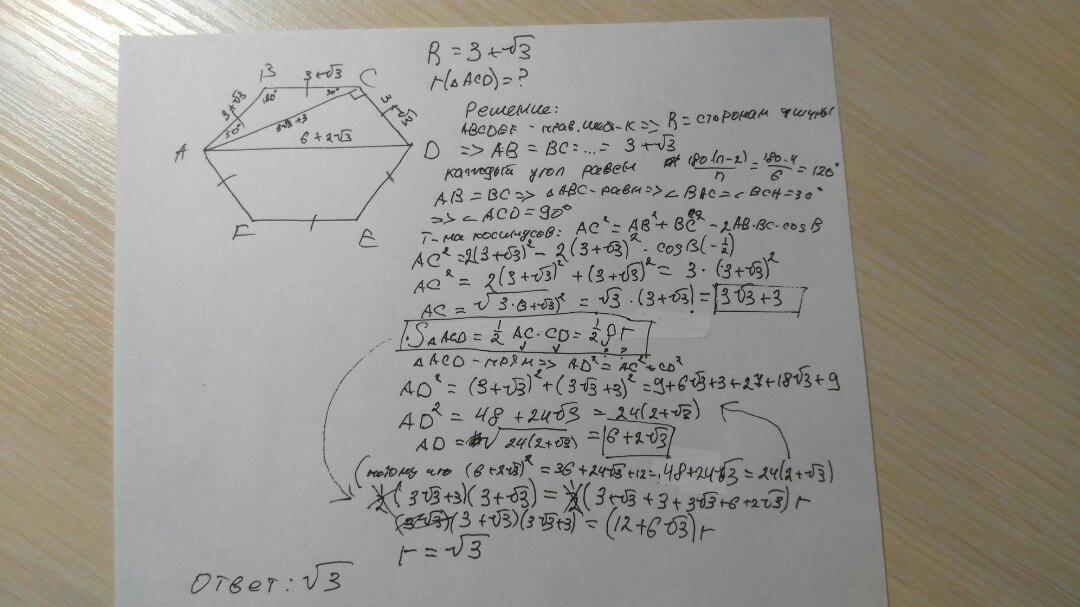 B 3+√3 C
3+√3 120° 30° 3+√3
30° 3√3+3
A 6+2√3 D
F E
R = 3+√3
r(△ACD) = ?
Решение:
ABCDEF - прав. => R = сторонам
=> AB = BC = ... = 3+√3
каждый угол равен 180(n-2)/n = 180·4/6 = 120°
AB = BC => △ABC - равн => ∠BAC = ∠BCA = 30°
=> ∠ACD = 90°
Т-ма косинусов: AC² = AB² + BC² - 2AB·BC·cosB
AC² = 2(3+√3)² - 2(3+√3)² · cosB(-1/2)
AC² = 2(3+√3)² + (3+√3)² = 3·(3+√3)²
AC = √3·(3+√3)² = √3·(3+√3) = 3√3+3
S△ACD = 1/2 AC·CD = 1/2 Pr
△ACD - прям => AD² = AC² + CD²
AD² = (3+√3)² + (3√3+3)² = 9+6√3+3+27+18√3+9
AD² = 48+24√3 = 24(2+√3)
AD = √24(2+√3) = 6+2√3
(потому что (6+2√3)² = 36+24√3+12 = 48+24√3 = 24(2+√3)
1/2(3√3+3)(3+√3) = 1/2(3+√3+3+3√3+6+2√3)r
(3+√3)(3√3+3) = (12+6√3)r
r = √3
Ответ: √3